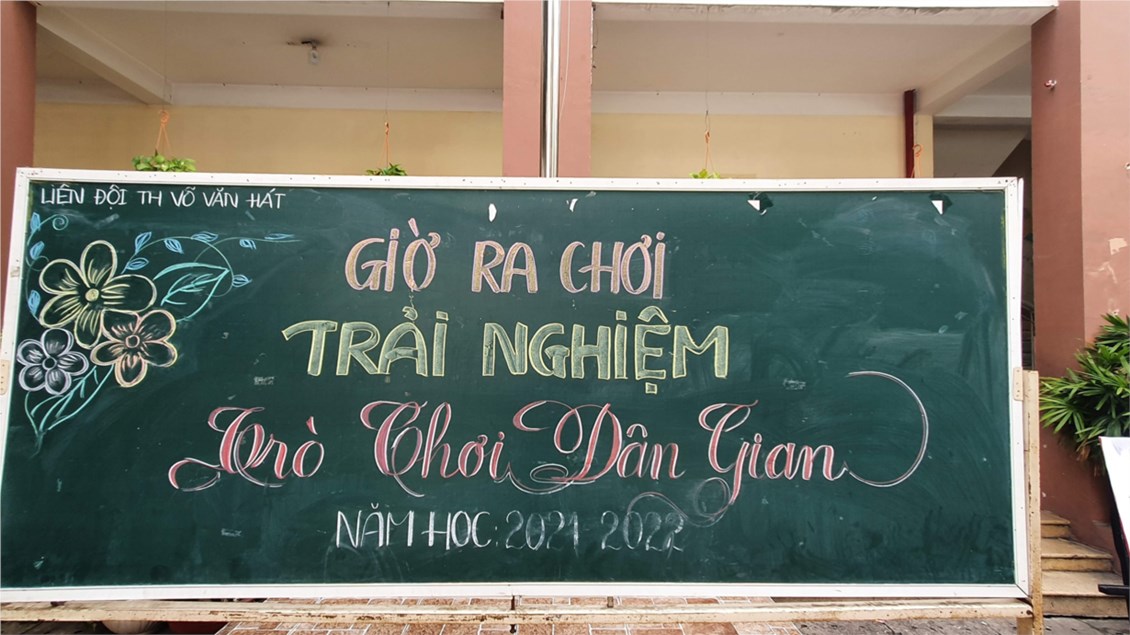 LIÊN ĐỘI TH VÕ VĂN HÁT
GIỜ RA CHƠI
TRẢI NGHIỆM
Trò Chơi Dân Gian
NĂM HỌC: 2021-2022